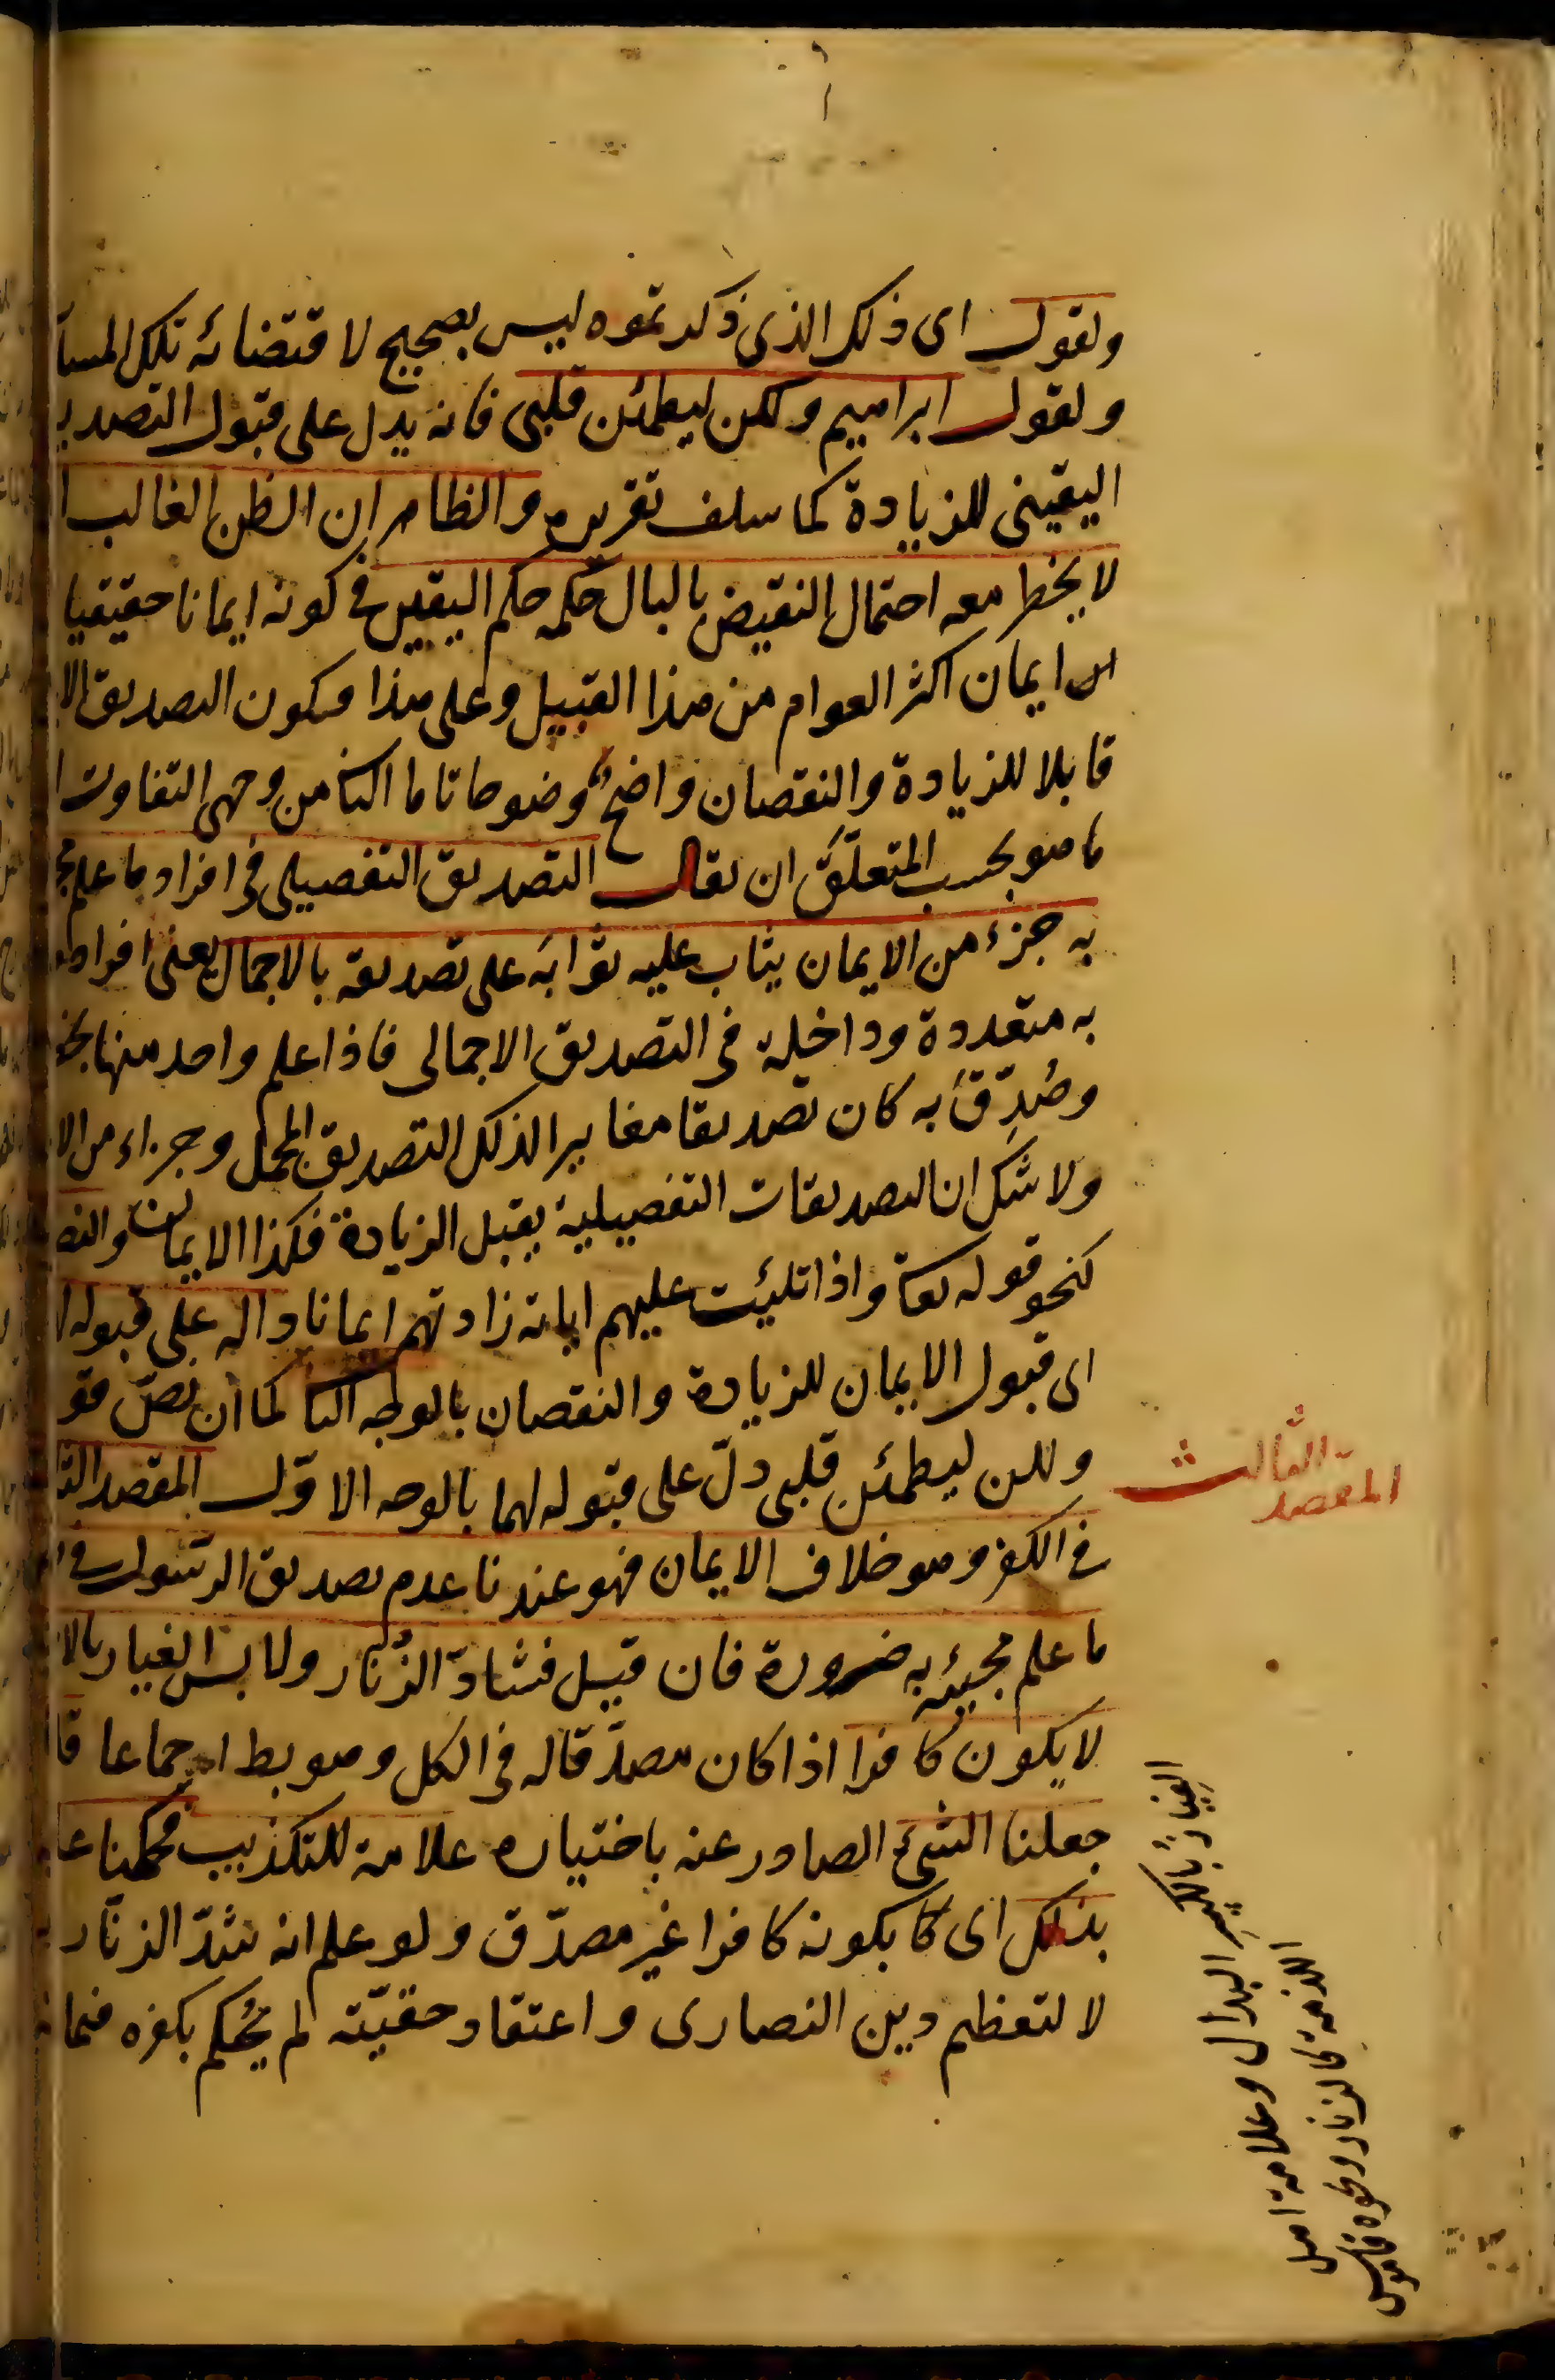 ونقول اى ذلك الذى ذكرتموه ليس بصحيح لاقتضائه تلك المسا
ولقول ابراهيم ولكن ليطمئن قلبى فانه يدل على قبول التصدي
اليقينى للزيادة كما سلف تقريره والظاهر ان الظن الغالب ا
لا يخطر معه احتمال النقيض بالبال حكمه حكم اليقين فى كونه ايمانا حقيقيا
ايمان اكثر العوام من هذا القبيل وعلى هذا فيكون التصديق الا
قابلا للزيادة والنقصان واضح وضوحا تاما الثا من وجهى التفاوت ا
ما هو بحسب المتعلّق ان يقال التصديق التفصيلى فى افراد ما علم مج
به جزء من الايمان يثاب عليه ثوابه على تصديقه بالاجمال يعنى افراد
به متعددة وداخلة فى التصديق الاجمالى فاذا علم واحد منها بخ
وصُدِّقَ به كان تصديقا مغايرا لذلك التصديق المجمل وجزاء من الا
ولا شك ان التصديقات التفصيلية يقبل الزيادة فكذا الايمان والنص
كنحو قوله تعا واذا تليت عليهم اياته زادتهم ايمانا داله على قبوله ا
اى قبول الايمان للزيادة والنقصان بالوجه الثا كما ان نصّ قو
ولكن ليطمئن قلبى دلّ على قبوله لهما بالوجه الاوّل المقصد الثا
فى الكفر وهو خلاف الايمان فهو عندنا عدم تصديق الرّسول فى
ما علم مجيئه به ضرورة فان قيل فشادّ الزُنّار ولابس الغيار بالا
لا يكون كافرا اذا كان مصدّقا له فى الكل وهو بط اجماعا قا
جعلنا الشىء الصادر عنه باختياره علامة للتكذيب فحكمنا عل
بذلك اى بكونه كافرا غير مصدّق ولو علم انه شدّ الزنّار
لا لتعظيم دين النصارى واعتقاد حقيّته لم يُحكم بكفره فيما
المقصد الثالث
الغيار بالكسر البدال وعلامة اهل
الذمة كالزنار ونحوه قاموس